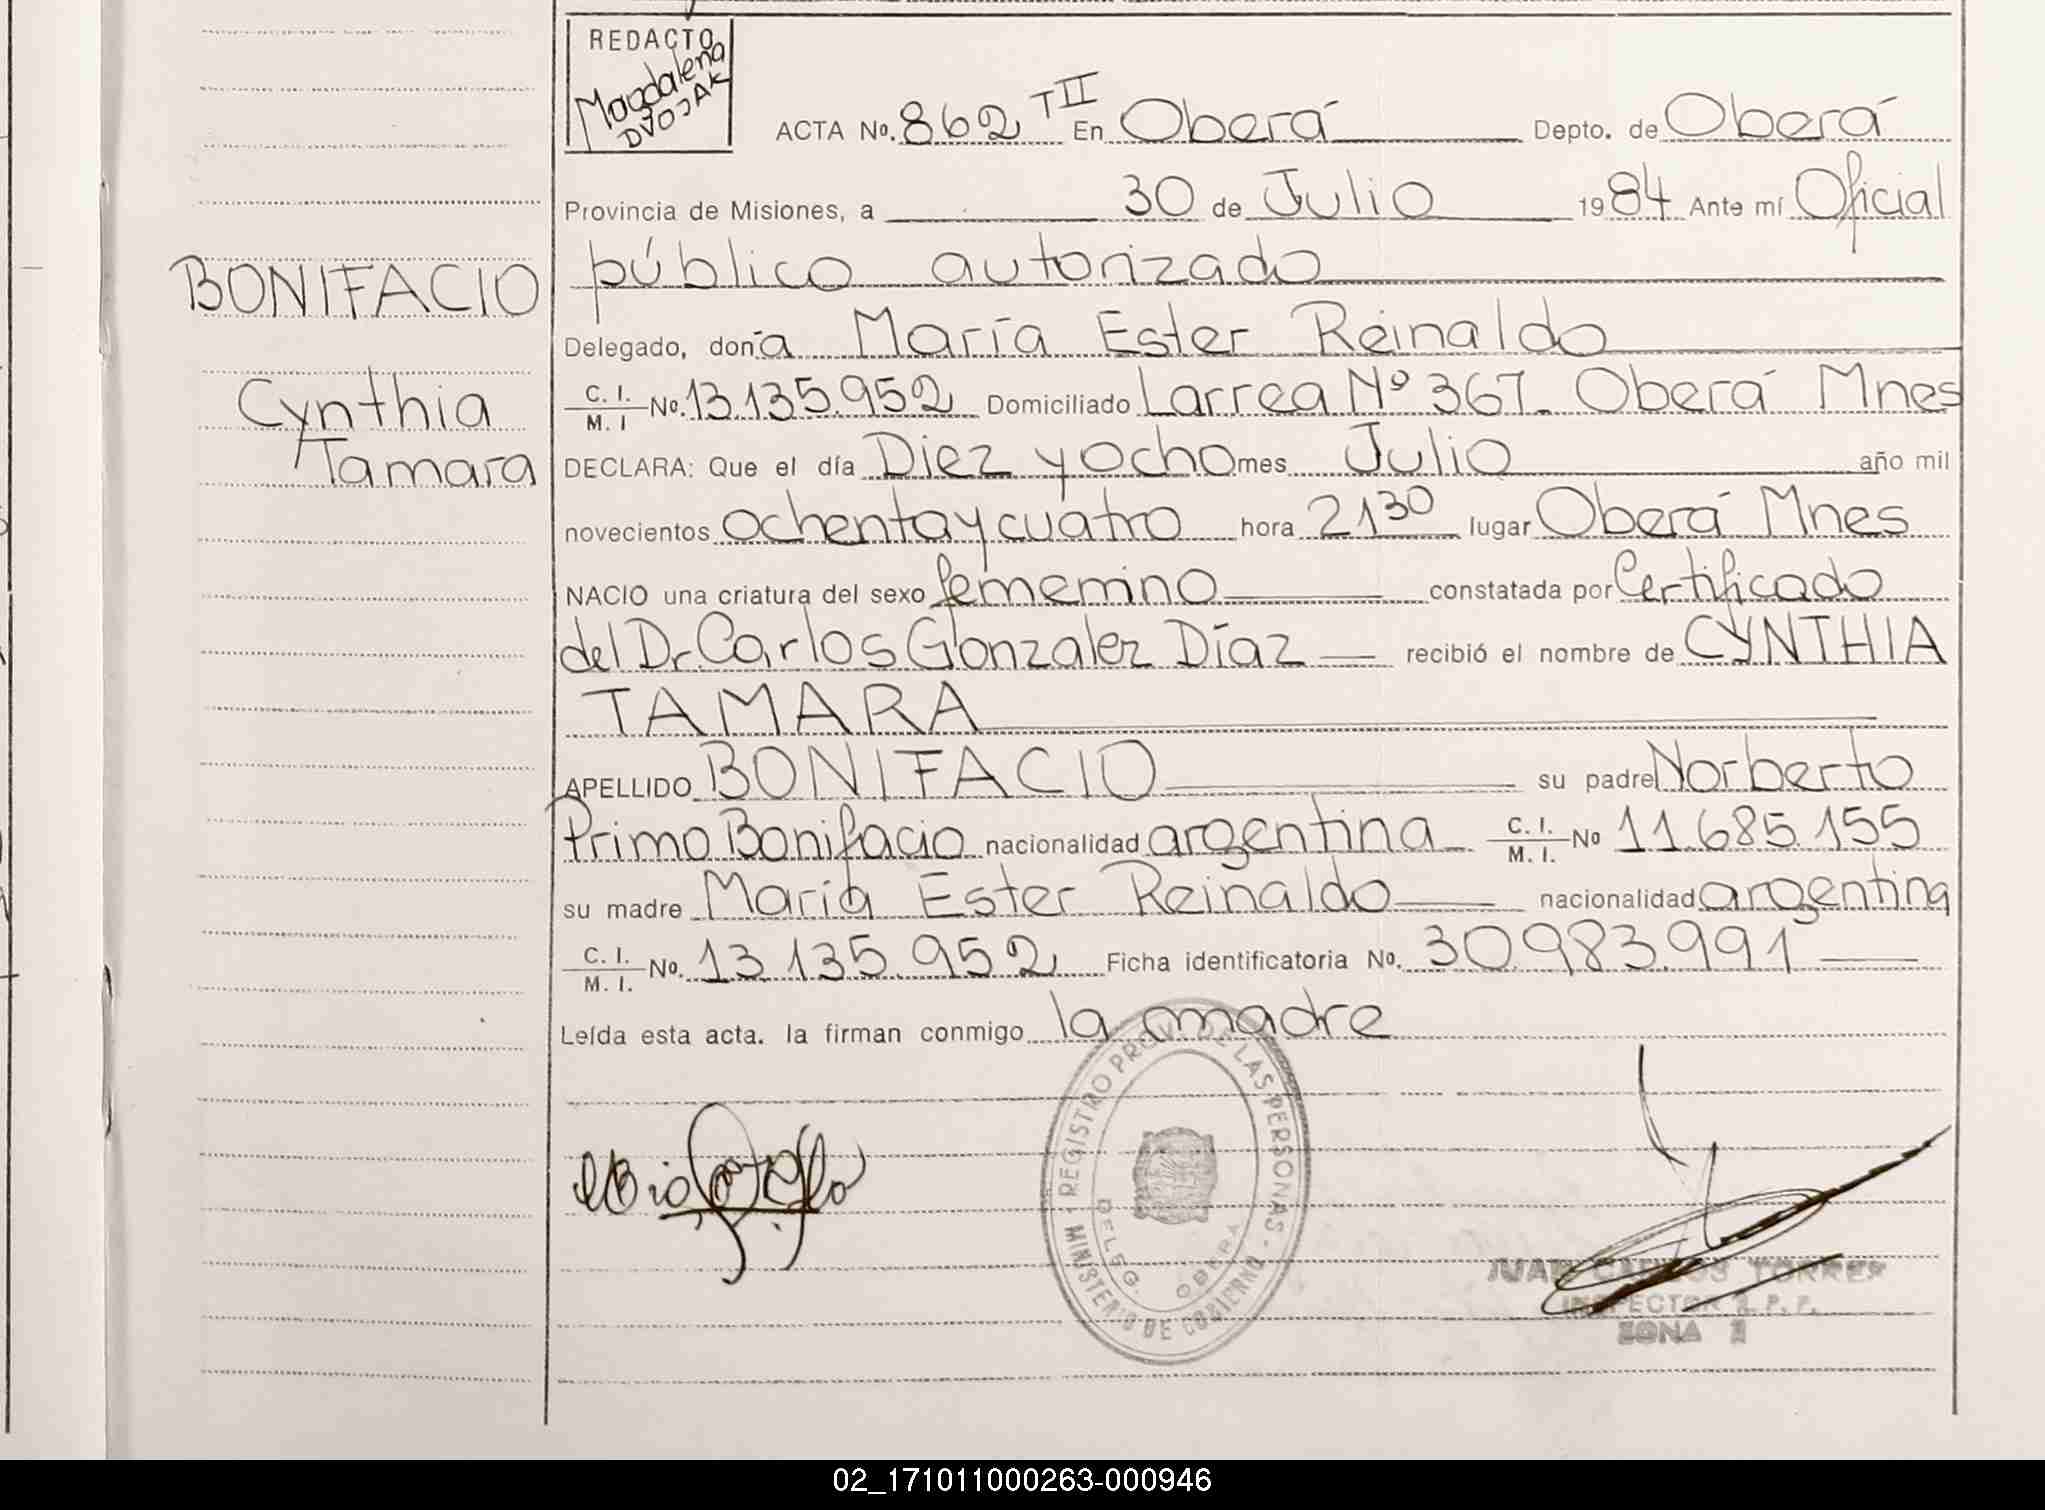 REDACTO
Magdalena
DVOJAK
ACTA No. 862 TII En Oberá Depto. de Oberá
Provincia de Misiones, a 30 de Julio 1984 Ante mí Oficial
público autorizado
BONIFACIO
Delegado, doña María Ester Reinaldo
Cynthia
C. I. / M. I No. 13.135.952 Domiciliado Larrea Nº 367. Oberá Mnes
Tamara
DECLARA: Que el día Diez y ocho mes Julio año mil
novecientos ochenta y cuatro hora 21 30 lugar Oberá Mnes
NACIO una criatura del sexo femenino constatada por Certificado
del Dr Carlos Gonzalez Díaz recibió el nombre de CYNTHIA
TAMARA
APELLIDO BONIFACIO su padre Norberto
Primo Bonifacio nacionalidad argentina C. I. / M. I. No 11.685.155
su madre María Ester Reinaldo nacionalidad argentina
C. I. / M. I. No. 13.135.952 Ficha identificatoria No. 30.983.991
Leída esta acta. la firman conmigo la madre
REGISTRO PROV. DE LAS PERSONAS - MINISTERIO DE GOBIERNO -
DELEG. OBERA
JUAN CARLOS TORRES
INSPECTOR
ZONA
02_171011000263-000946